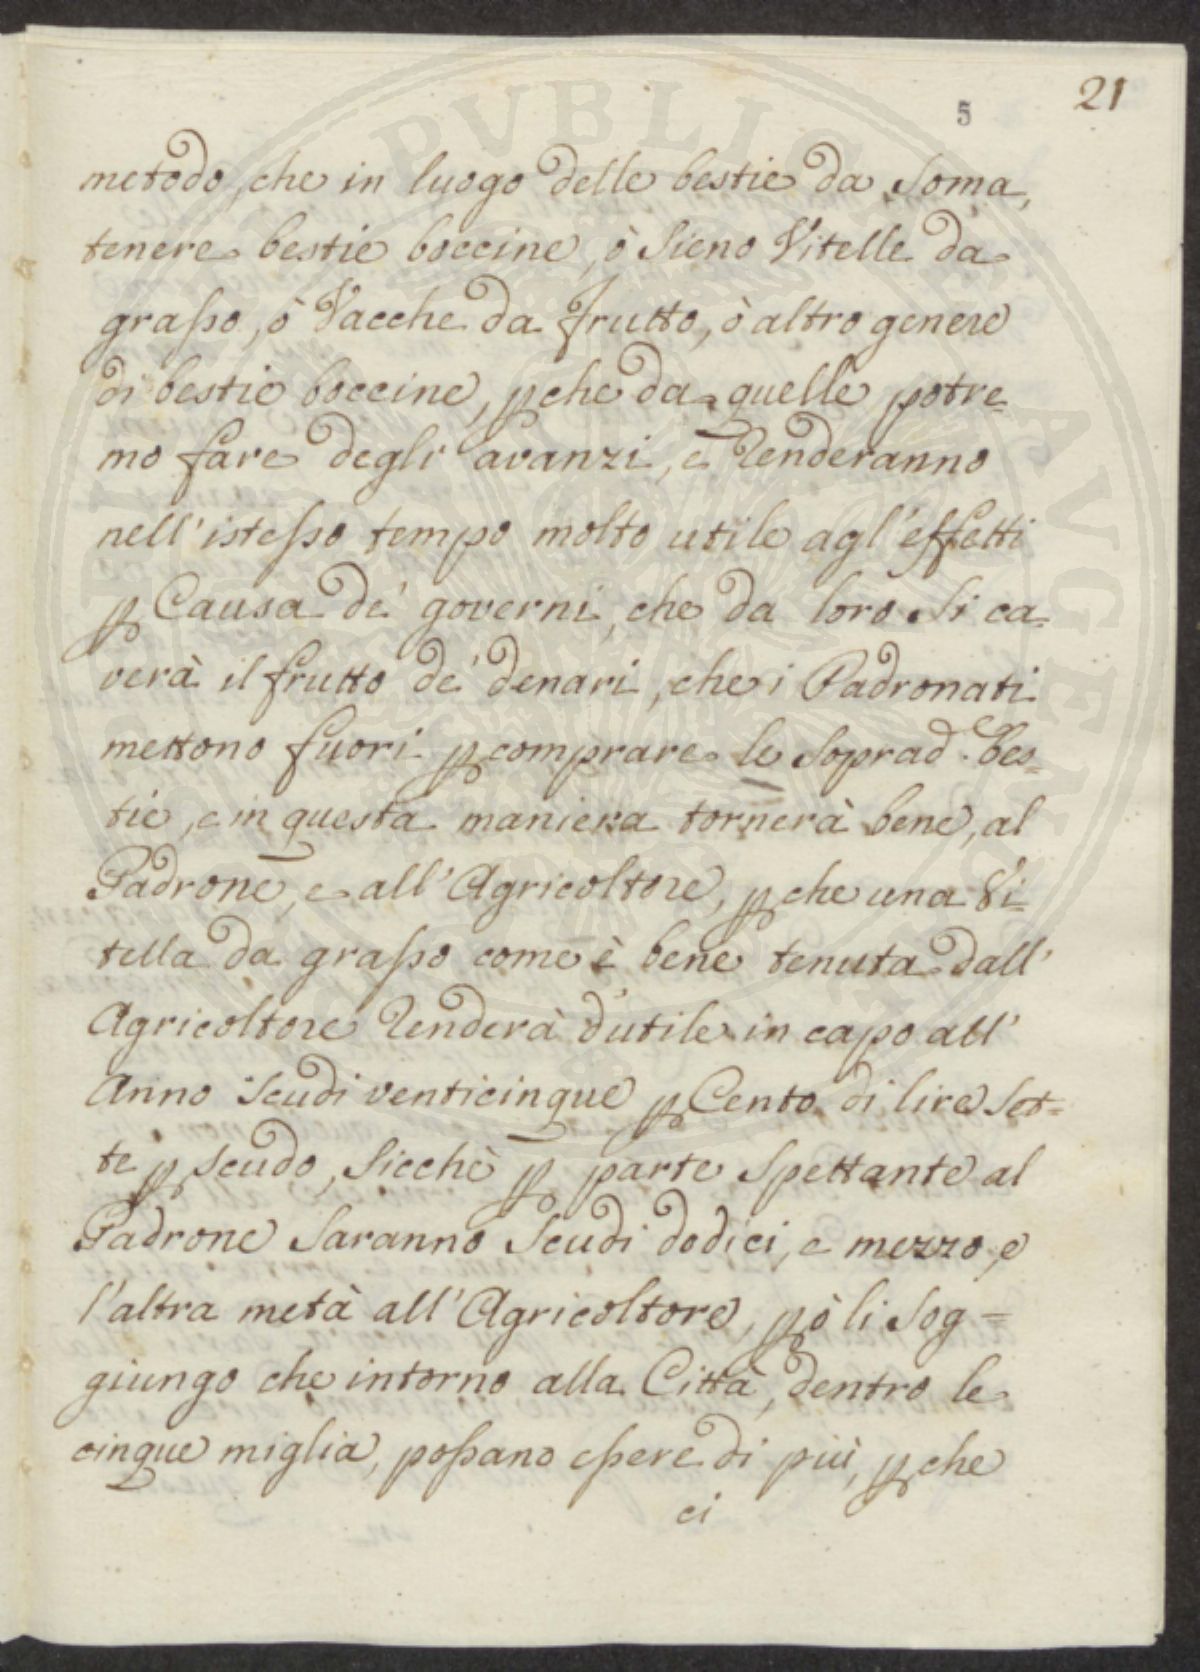 5 21
metodo, che in luogo delle bestie da Soma,
tenere bestie boccine, ò Sieno Vitelle da
grasso, ò Vacche da frutto, ò altro genere
di bestie boccine, pche da quelle potre=
mo fare degli avanzi, e Renderanno
nell'istesso tempo molto utile agl'effetti
p Causa de' governi, che da loro Si ca=
verà il frutto de' denari, che i Padronati
mettono fuori p comprare le Soprad. bes=
tie, e in questa maniera tornerà bene, al
Padrone, e all'Agricoltore, pche una Vi=
tella da grasso come è bene tenuta dall'
Agricoltore Renderà d'utile in capo all'
Anno Scudi venticinque p Cento di lire Set=
te p scudo, Sicchè p parte Spettante al
Padrone Saranno Scudi dodici, e mezzo, e
l'altra metà all'Agricoltore, pò li Sog=
giungo che intorno alla Città, dentro le
cinque miglia, possano essere di più, pche
ci
PVBLICE AVGENDAE